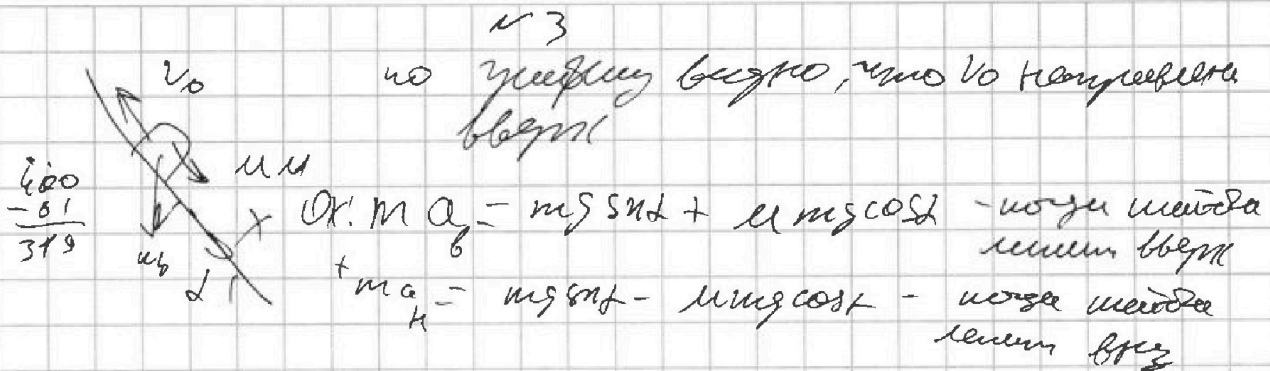 № 3
V₀ по графику видно, что V₀ направлена
вверх
400
- 81
319
mg
α
X
Ox: m a_в = mg sin α + μ mg cos α - когда шайба
летит вверх
+ m a_н = mg sin α - μ mg cos α - когда шайба
летит вниз